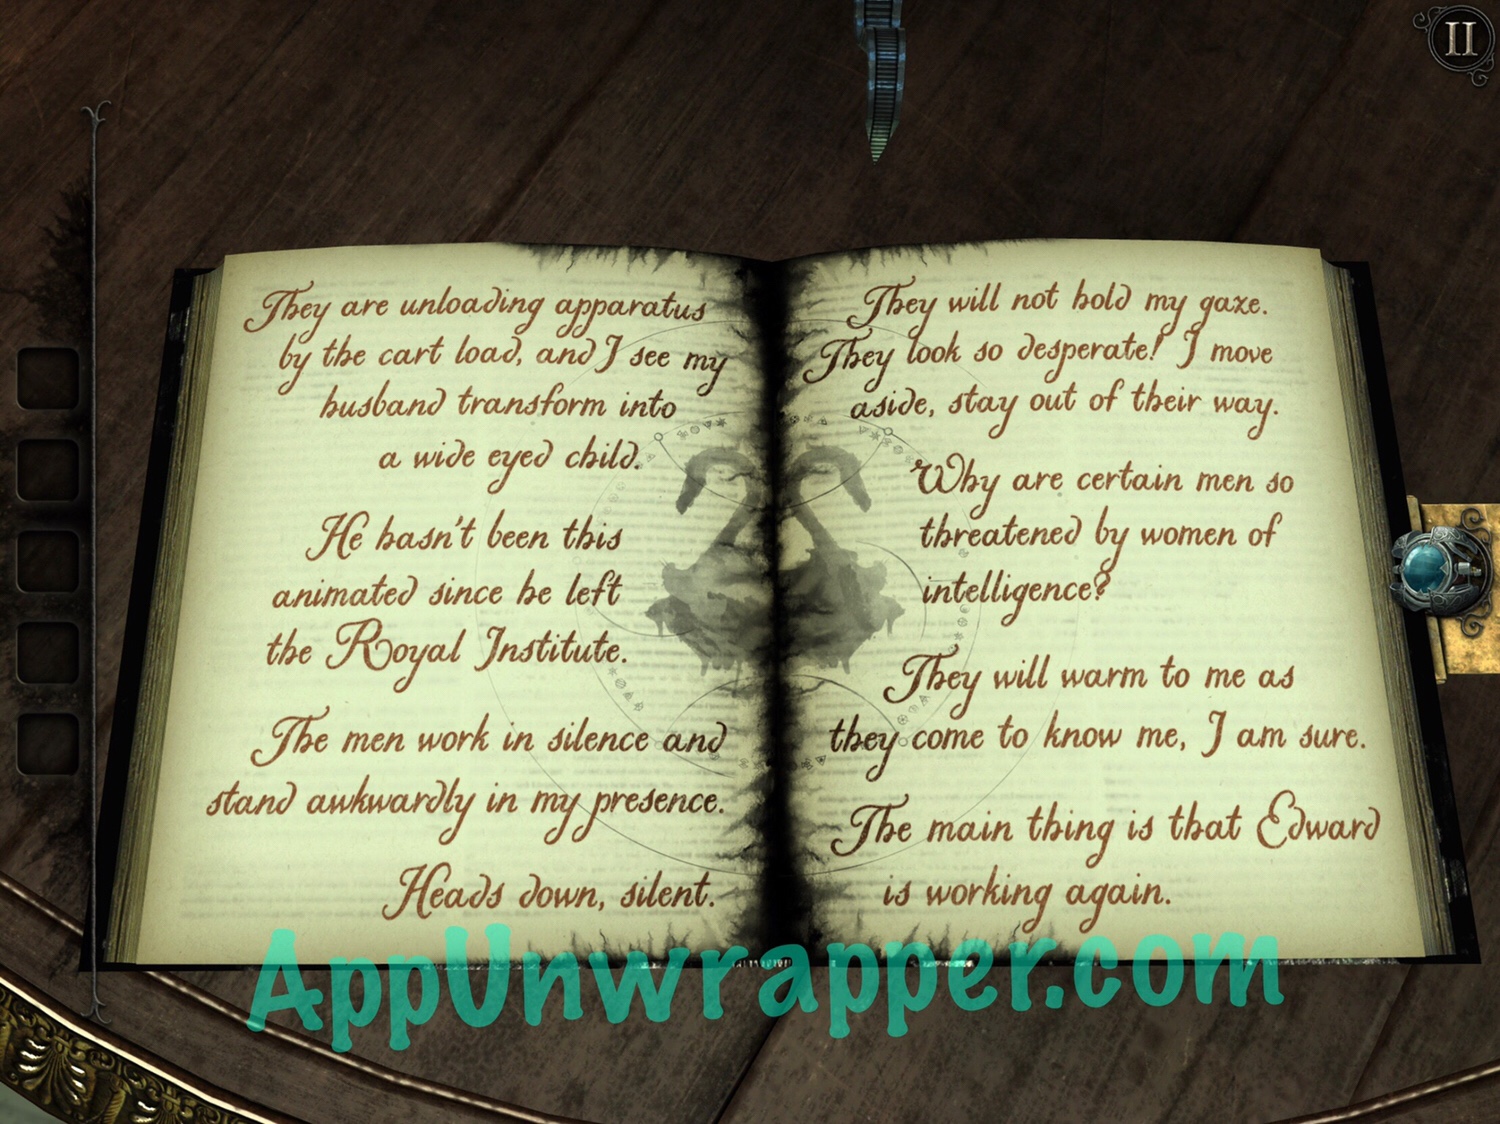 They are unloading apparatus
by the cart load, and I see my
husband transform into
a wide eyed child.
He hasn't been this
animated since he left
the Royal Institute.
The men work in silence and
stand awkwardly in my presence.
Heads down, silent.
They will not hold my gaze.
They look so desperate! I move
aside, stay out of their way.
Why are certain men so
threatened by women of
intelligence?
They will warm to me as
they come to know me, I am sure.
The main thing is that Edward
is working again.
AppUnwrapper.com
II